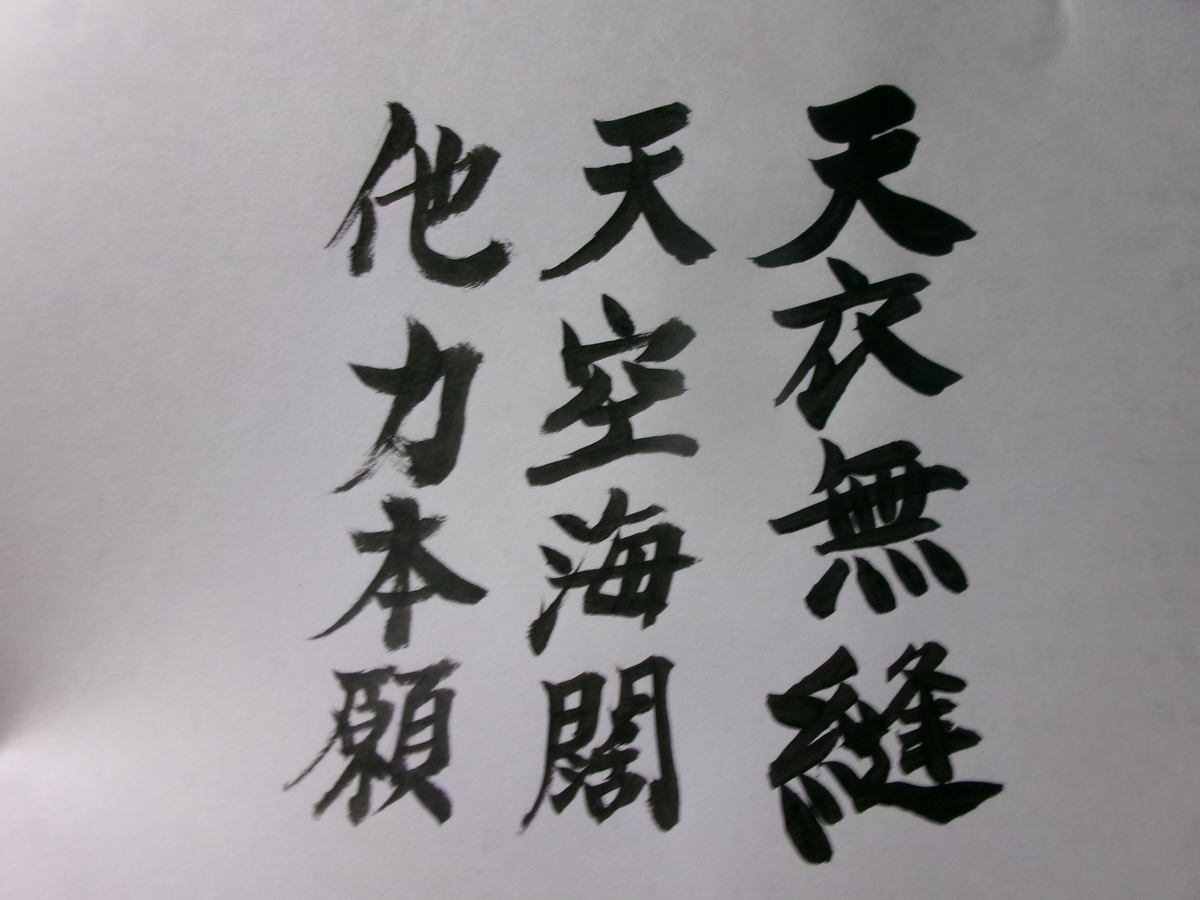 天衣無縫
天空海闊
他力本願